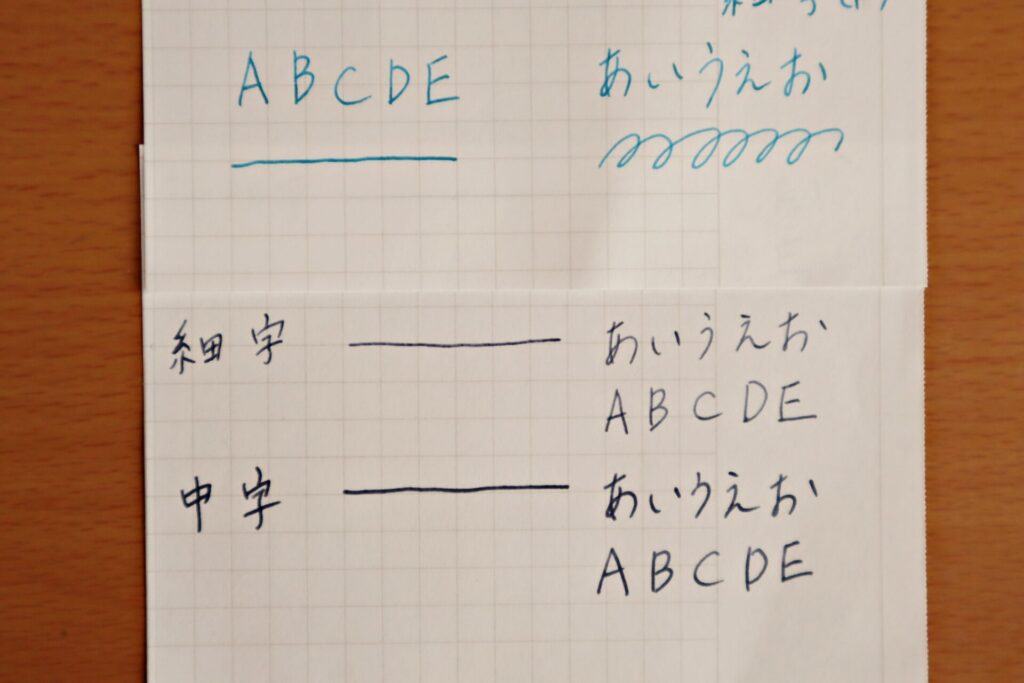 ABCDE
あいうえお
細字
あいうえお
ABCDE
中字
あいうえお
ABCDE